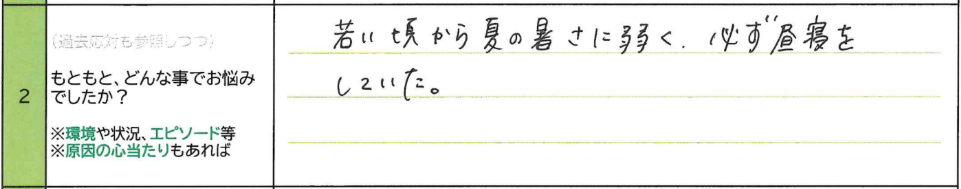 (過去応対も参照しつつ)
2
もともと、どんな事でお悩み
でしたか？
※環境や状況、エピソード等
※原因の心当たりもあれば
若い頃から夏の暑さに弱く、必ず昼寝を
していた。